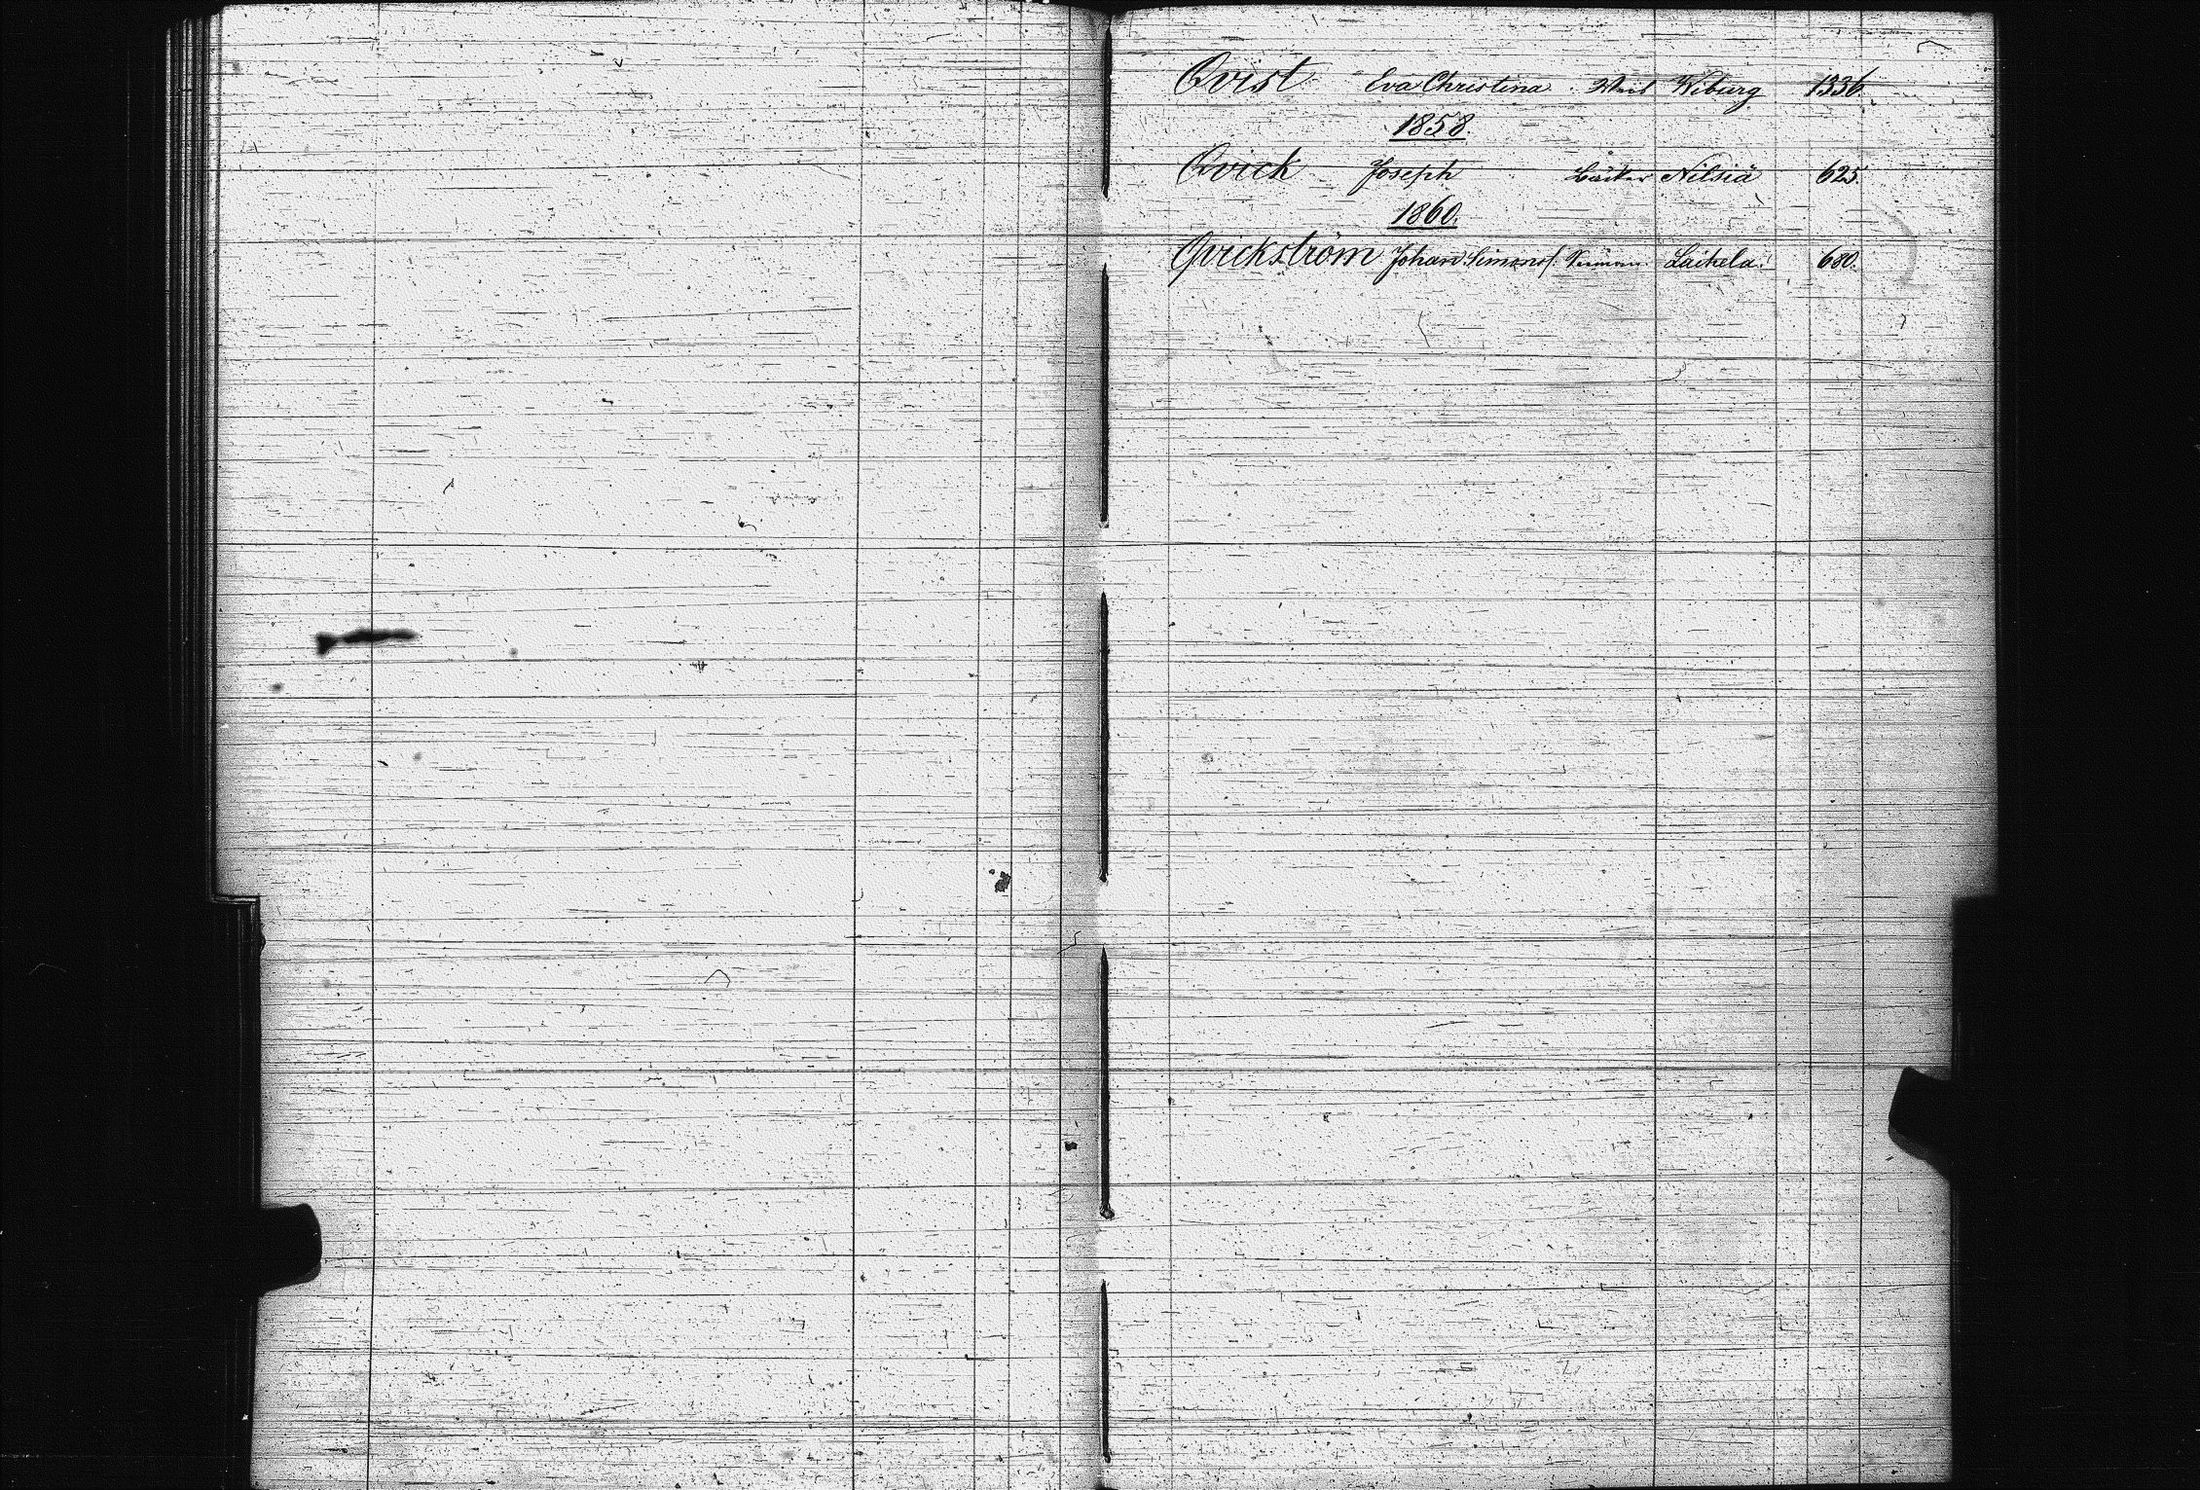 Qvist Eva Christina Wiburg 1336.
1858.
Qvick Joseph Nilsiä 625.
1860.
Qvickström Johan Simonss. Laihela. 680.